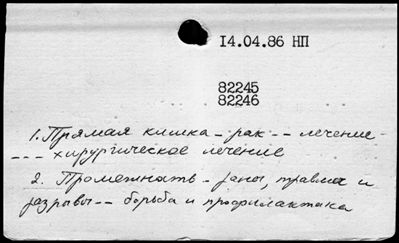 14.04.86 НП
82245
82246
1. Прямая кишка - рак -- лечение -
--- хирургическое лечение
2. Промежность - раны, травма и
разрывы -- борьба и профилактика